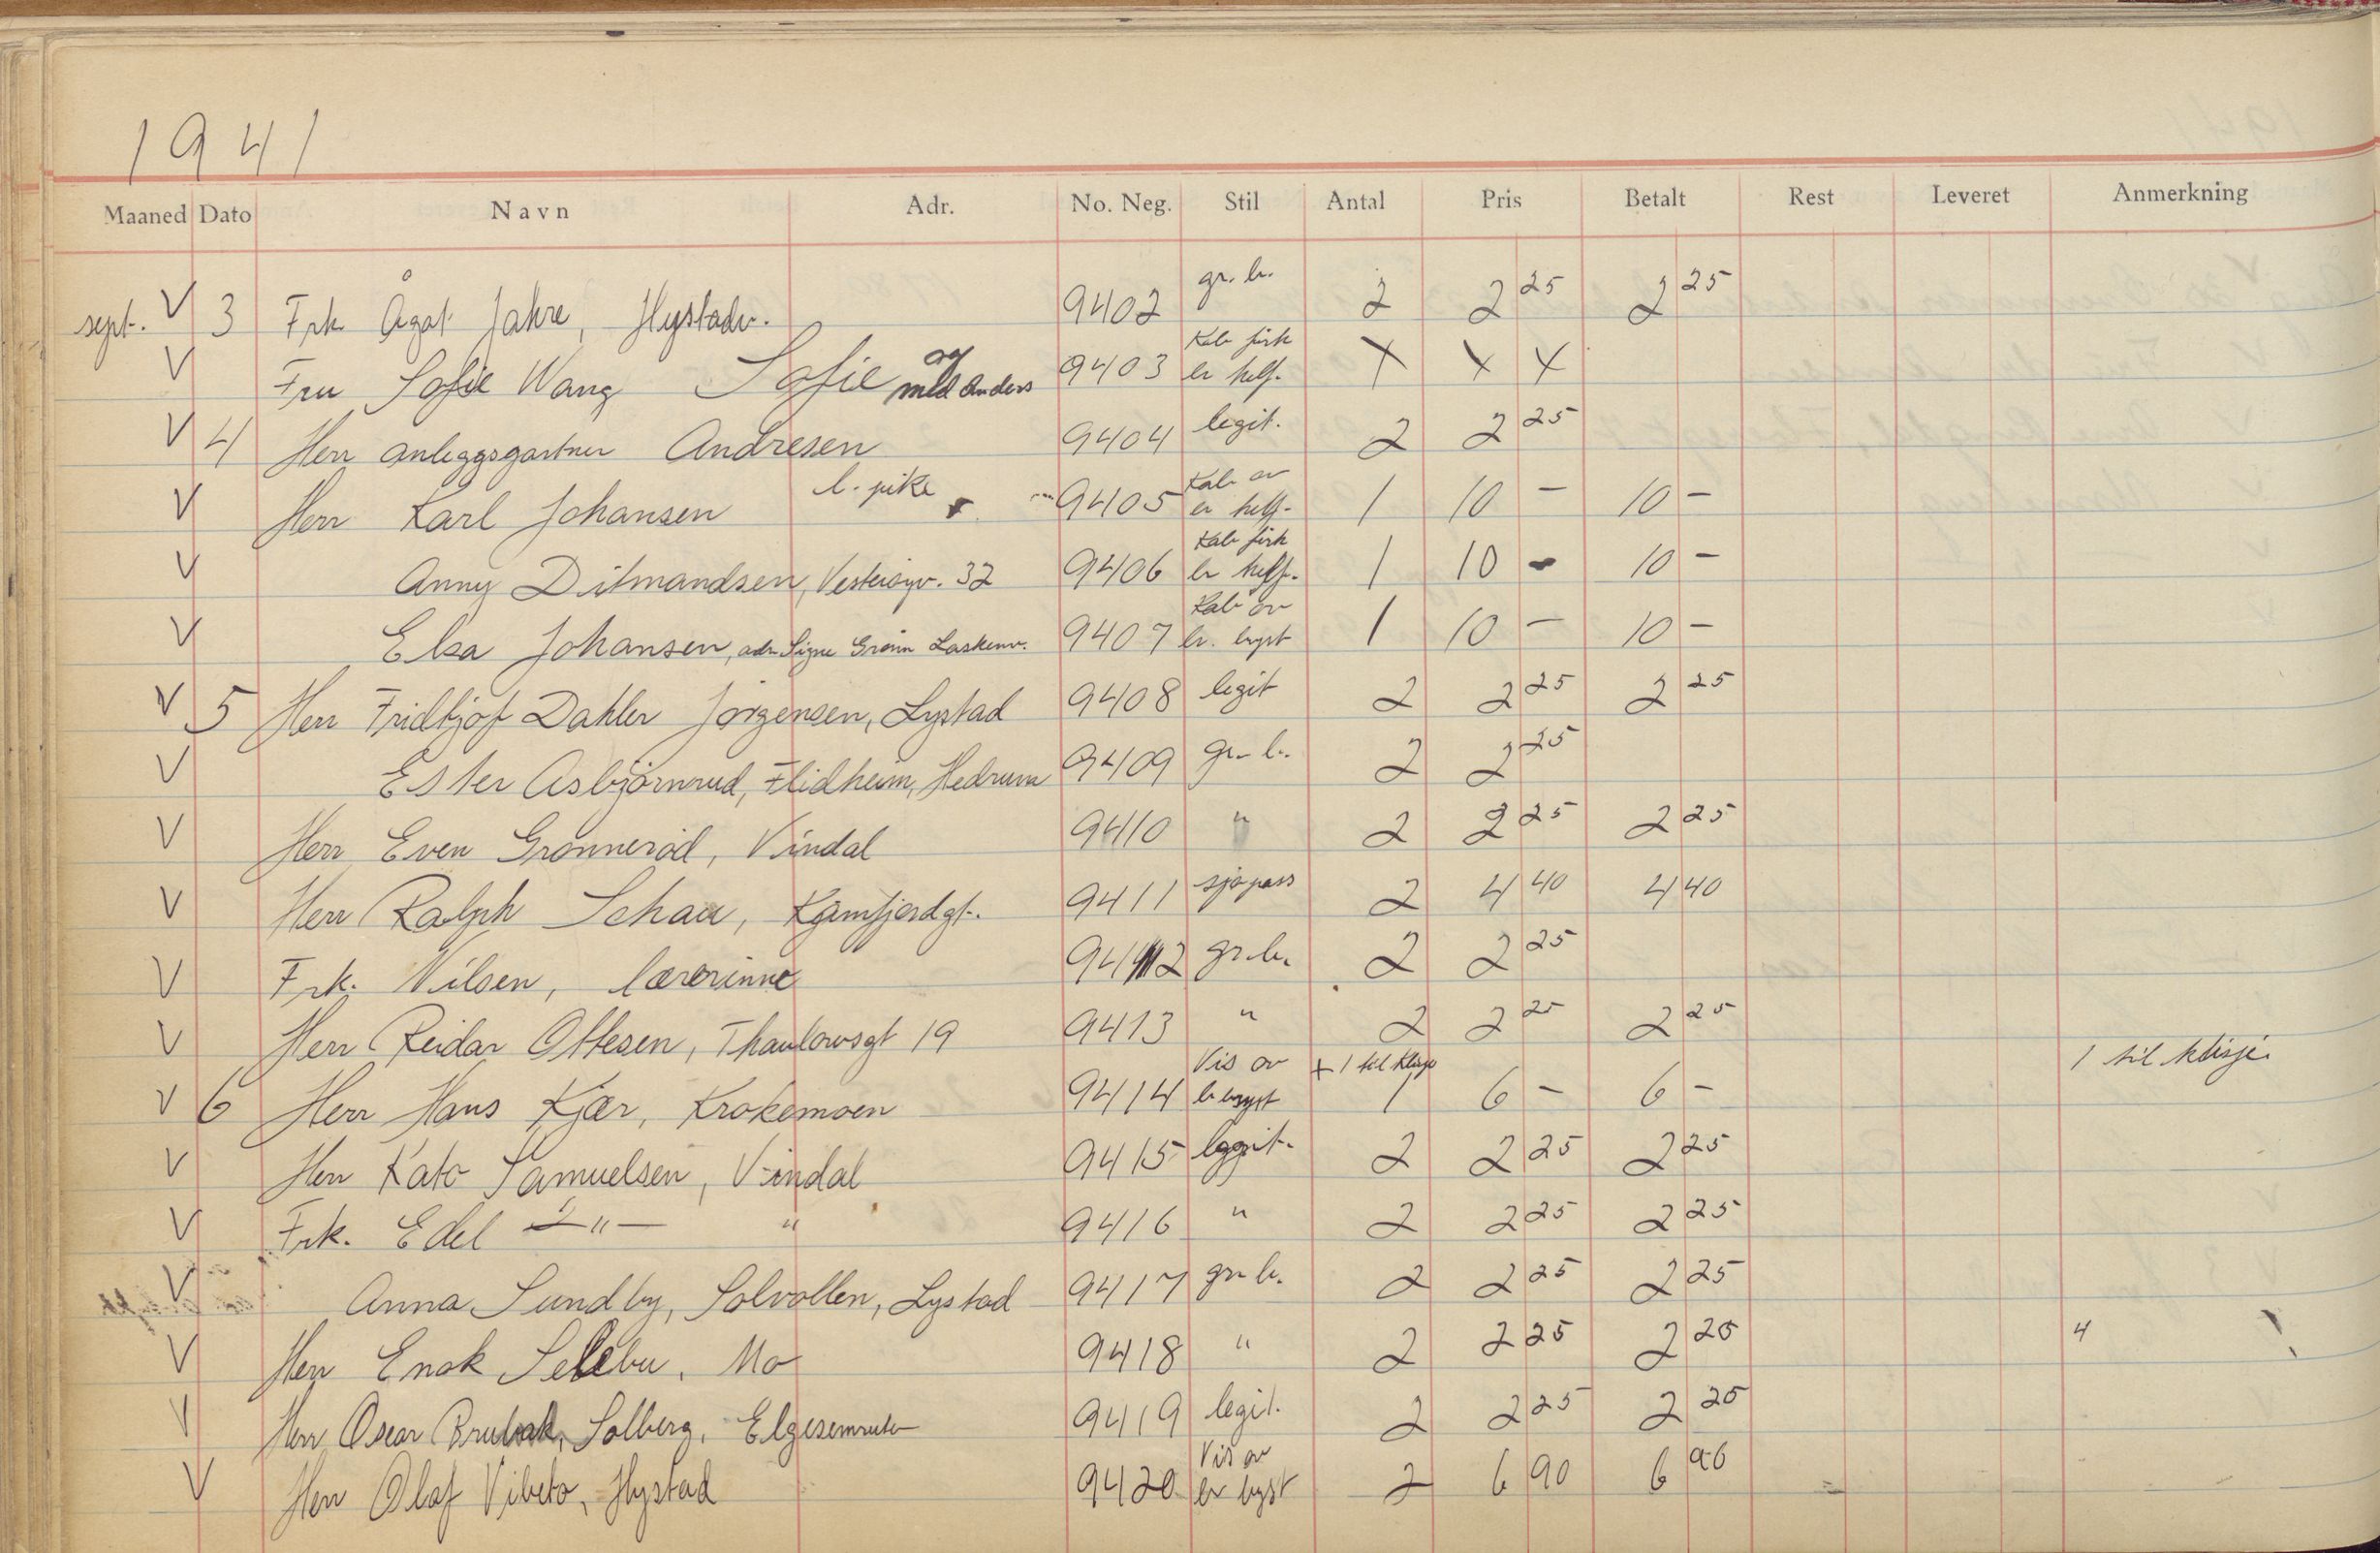 1941
Maaned Dato Navn Adr. No. Neg. Stil Antal Pris Betalt Rest Leveret Anmerkning
sept. V 3 Frk Ågot Jahre, Hystadv. 9402 gr. b. 2 2 25 2 25
V Fru Sofie Wang Sofie og med Anders 9403 Kab firk er helf. X X X
V 4 Herr anleggsgartner Andresen 9404 legit. 2 2 25
V Herr Karl Johansen l. pike 9405 Kab ov er helf. 1 10 - 10 -
V Anny Ditmandsen, Vesterøyv. 32 9406 Kab firk er helf. 1 10 - 10 -
V Elsa Johansen, adr Signe Grønn Laskenv. 9407 Kab ov br. byst 1 10 - 10 -
V 5 Herr Fridtjof Dahler Jørgensen, Lystad 9408 legit 2 2 25 2 25
V Ester Asbjørnrud, Flidheim, Hedrum 9409 gr. b. 2 2 25
V Herr Even Grønnerød, Vindal 9410 " 2 2 25 2 25
V Herr Ralph Schau, Kamfjordgt. 9411 sjøpass 2 4 40 4 40
V Frk. Nilsen, lærerinne 9412 gr. b. 2 2 25
V Herr Reidar Ottesen, Thaulowsgt 19 9413 " 2 2 25 2 25
V 6 Herr Hans Kjær, Krokemoen 9414 Vis ov b byst + 1 til klisje 1 6 - 6 - 1 til klisje.
V Herr Kato Samuelsen, Vindal 9415 legit. 2 2 25 2 25
V Frk. Edel —"— " 9416 " 2 2 25 2 25
V Anna Sundby, Solvollen, Lystad 9417 gr. b. 2 2 25 2 25
V Herr Enok Selebu, Mo 9418 " 2 2 25 2 25 4
V Herr Oscar Brubak, Solberg, 9419 legit. 2 2 25 2 25
V Herr Olaf Vibeto, Hystad 9420 Vis ov er byst 2 6 90 6 90